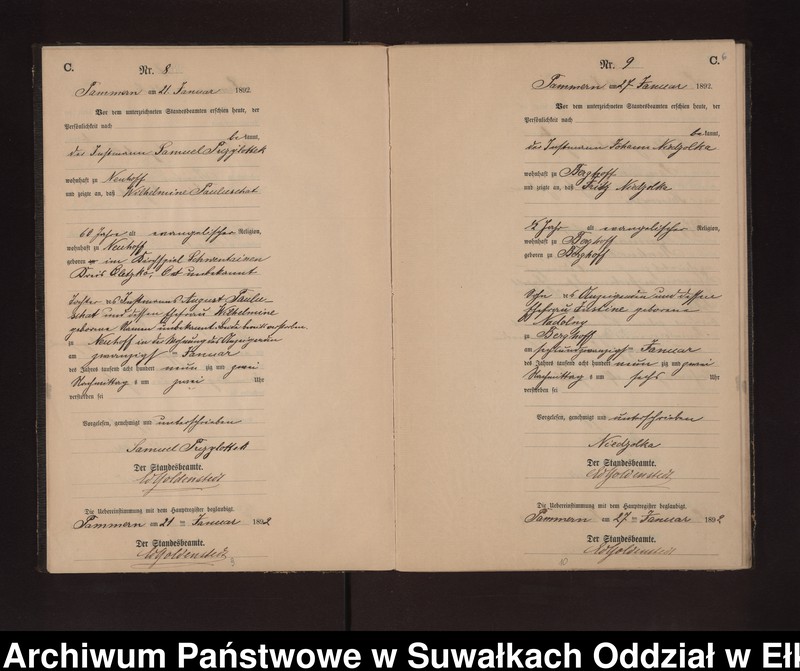 C.
Nr. 8
Tammern am 21. Januar 1892.
Vor dem unterzeichneten Standesbeamten erschien heute, der
Persönlichkeit nach
be kannt,
der Instmann Samuel Przylottek
wohnhaft zu Neuhoff
und zeigte an, daß Wilhelmine
60 Jahre alt evangelischer Religion,
wohnhaft zu Neuhoff
geboren im Kirchspiel Schwentainen
Kreis Oletzko, Ort unbekannt
Tochter des Instmanns August
und dessen Ehefrau Wilhelmine
geborene Namen unbekannt, beide bereits verstorben
zu Neuhoff in der Wohnung des Anzeigenden
am zwanzigsten Januar
des Jahres tausend acht hundert neun zig und zwei
Nachmittag s um zwei Uhr
verstorben sei
Vorgelesen, genehmigt und unterschrieben
Samuel Przylottek
Der Standesbeamte.
Goldenstedt
Die Uebereinstimmung mit dem Hauptregister beglaubigt.
Tammern am 21 ten Januar 1892
Der Standesbeamte.
Goldenstedt
C.
Nr. 9
Tammern am 27. Januar 1892.
Vor dem unterzeichneten Standesbeamten erschien heute, der
Persönlichkeit nach
be kannt,
der Instmann Johann Niedzolka
wohnhaft zu Berghoff
und zeigte an, daß Fritz Niedzolka
½ Jahr alt evangelischer Religion,
wohnhaft zu Berghoff
geboren zu Berghoff
Sohn des Anzeigenden und dessen
Ehefrau Justine geborene
Nadolny
zu Berghoff
am sechsundzwanzigsten Januar
des Jahres tausend acht hundert neun zig und zwei
Nachmittag s um sechs Uhr
verstorben sei
Vorgelesen, genehmigt und unterschrieben
Niedzolka
Der Standesbeamte.
Goldenstedt
Die Uebereinstimmung mit dem Hauptregister beglaubigt.
Tammern am 27 ten Januar 1892
Der Standesbeamte.
Goldenstedt
Archiwum Państwowe w Suwałkach Oddział w Ełk